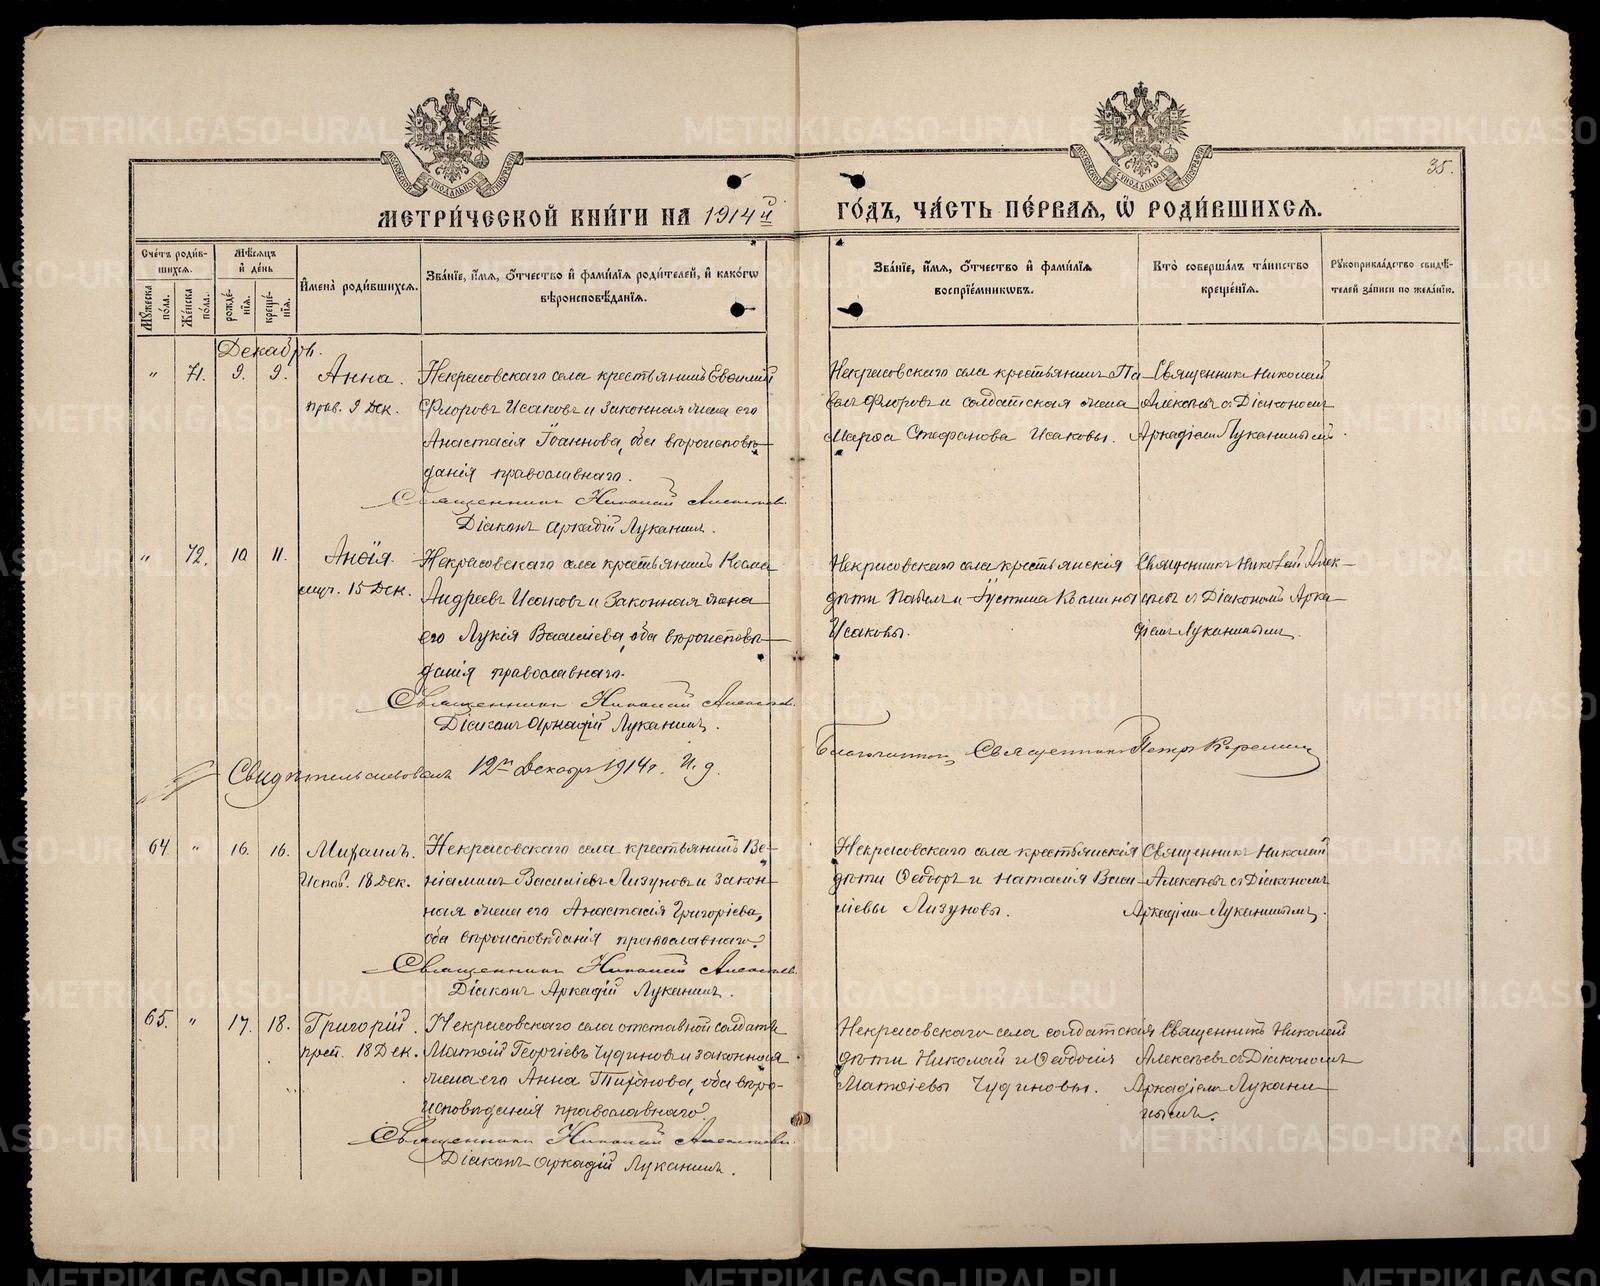 МЕТРИ́ЧЕСКОЙ КНИ́ГИ НА 1914 й
ГО́ДЪ, ЧА́СТЬ ПЕ́РВАѦ, Ѽ РОДИ́ВШИХСѦ.
35.
Счетъ роди́вшихсѧ.
Мѹ́жеска по́ла.
Же́нска по́ла.
Мѣ́сѧцъ и҆ де́нь
рожде́нїѧ.
креще́нїѧ.
И҆мена̀ роди́вшихсѧ.
Зва́нїе, и҆́мѧ, ѻ҆́тчество и҆ фами́лїѧ роди́телей, и҆ како́гѡ
вѣроисповѣ́данїѧ.
Зва́нїе, и҆́мѧ, ѻ҆́тчество и҆ фами́лїѧ
воспрїе́мникѡвъ.
Кто̀ соверша́лъ та́инство
креще́нїѧ.
Рꙋкоприкла́дство свидѣ́-
телей за́писи по жела́нїю.
Декабрь.
" 71. 9. 9. Анна.
прав. 9 Дек.
Некрасовскаго села крестьянинъ Евѳимій
Флоровъ Исаковъ и законная жена его
Анастасія Іоаннова, оба вѣроисповѣ-
данія православнаго.
Священникъ Николай Алексѣевъ
Діаконъ Аркадій Луканинъ.
Некрасовскаго села крестьянинъ Па-
велъ Флоровъ и солдатская жена
Марѳа Стефанова Исаковы.
Священникъ Николай
Алексѣевъ съ Діакономъ
Аркадіемъ Луканинымъ.
" 72. 10 11. Анѳія.
муч. 15 Дек.
Некрасовскаго села крестьянинъ Косма
Андреевъ Исаковъ и законная жена
его Лукія Василіева, оба вѣроисповѣ-
данія православнаго.
Священникъ Николай Алексѣевъ
Діаконъ Аркадій Луканинъ.
Некрасовскаго села крестьянскія
дѣти Павелъ и Іустина Космины
Исаковы.
Священникъ Николай Алек-
сѣевъ съ Діакономъ Арка-
діемъ Луканинымъ.
Свидѣтельствовалъ 12го Декабря 1914 г. И. д.
Благочиннаго Священникъ Петръ
64 " 16. 16. Михаилъ.
Испов. 18 Дек.
Некрасовскаго села крестьянинъ Ве-
ніаминъ Василіевъ Лизуновъ и закон-
ная жена его Анастасія Григоріева,
оба вѣроисповѣданія православнаго.
Священникъ Николай Алексѣевъ
Діаконъ Аркадій Луканинъ.
Некрасовскаго села крестьянскія
дѣти Ѳеодоръ и Наталія Васи-
ліевы Лизуновы.
Священникъ Николай
Алексѣевъ съ Діакономъ
Аркадіемъ Луканинымъ.
65. " 17. 18. Григорій.
преп. 18 Дек.
Некрасовскаго села отставной солдатъ
Матѳій Георгіевъ Чудиновъ и законная
жена его Анна Тихонова, оба вѣро-
исповѣданія православнаго.
Священникъ Николай Алексѣевъ
Діаконъ Аркадій Луканинъ.
Некрасовскаго села солдатскія
дѣти Николай и Ѳеодосія
Матѳіевы Чудиновы.
Священникъ Николай
Алексѣевъ съ Діакономъ
Аркадіемъ Лукани-
нымъ.
METRIKI.GASO-URAL.RU